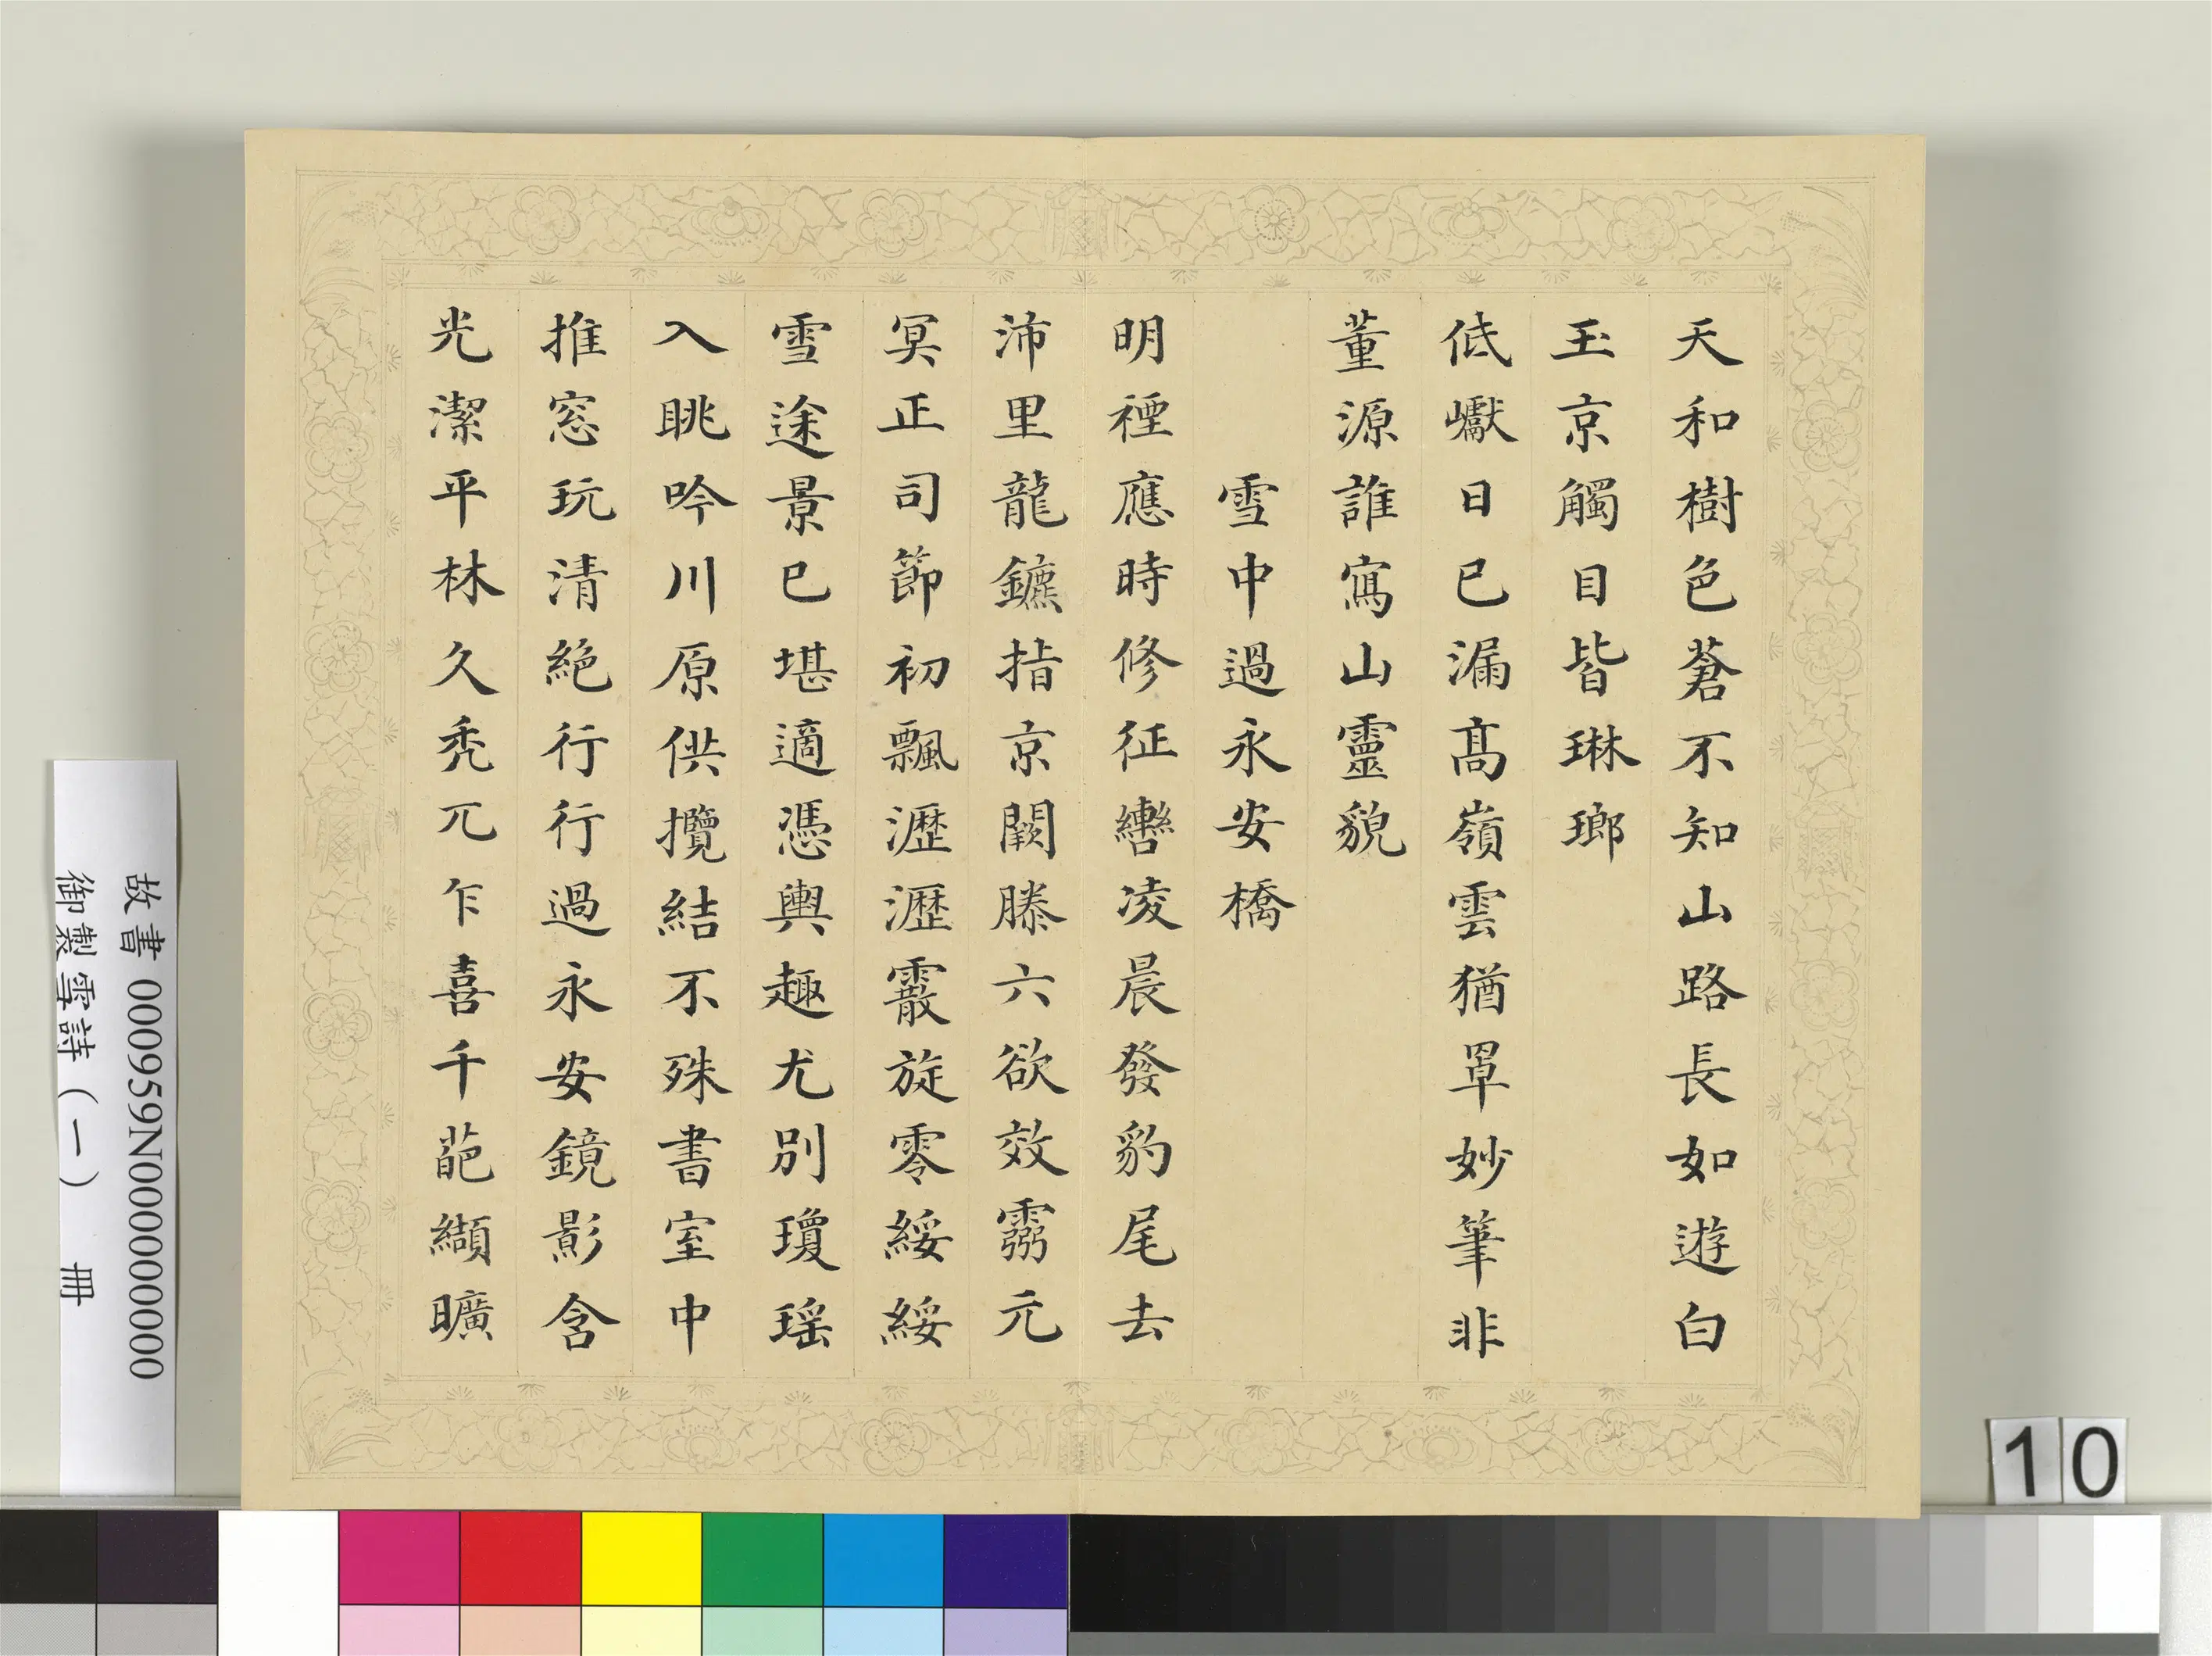 天和樹色蒼不知山路長如遊白
玉京觸目皆琳瑯
低巘日已漏髙嶺雲猶罩妙筆非
董源誰寫山靈貌
雪中過永安橋
明禋應時修征轡凌晨發豹尾去
沛里龍鑣指京闕滕六欲效霶元
冥正司節初飄瀝瀝霰旋零綏綏
雪途景已堪適憑輿趣尤別瓊瑶
入眺吟川原供攬結不殊書室中
推窓玩清絕行行過永安鏡影含
光潔平林久禿兀乍喜千葩纈曠
故書 000959N000000000
御製雪詩（一） 冊
10